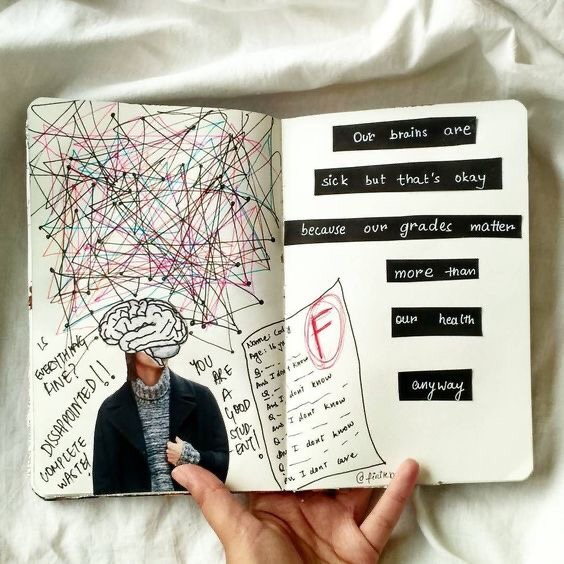 IS
EVERYTHING
FINE?
DISSAPOINTED!!
COMPLETE
WASTE!
YOU
ARE
A
GOOD
STUD-
ENT!
Name:
Age: 16
F
Q.
Ans I don't know
Q
Ans I don't know
Q
Ans I dont know
Q
I dont know
Q
I dont care
Our brains are
sick but that's okay
because our grades matter
more than
our health
anyway